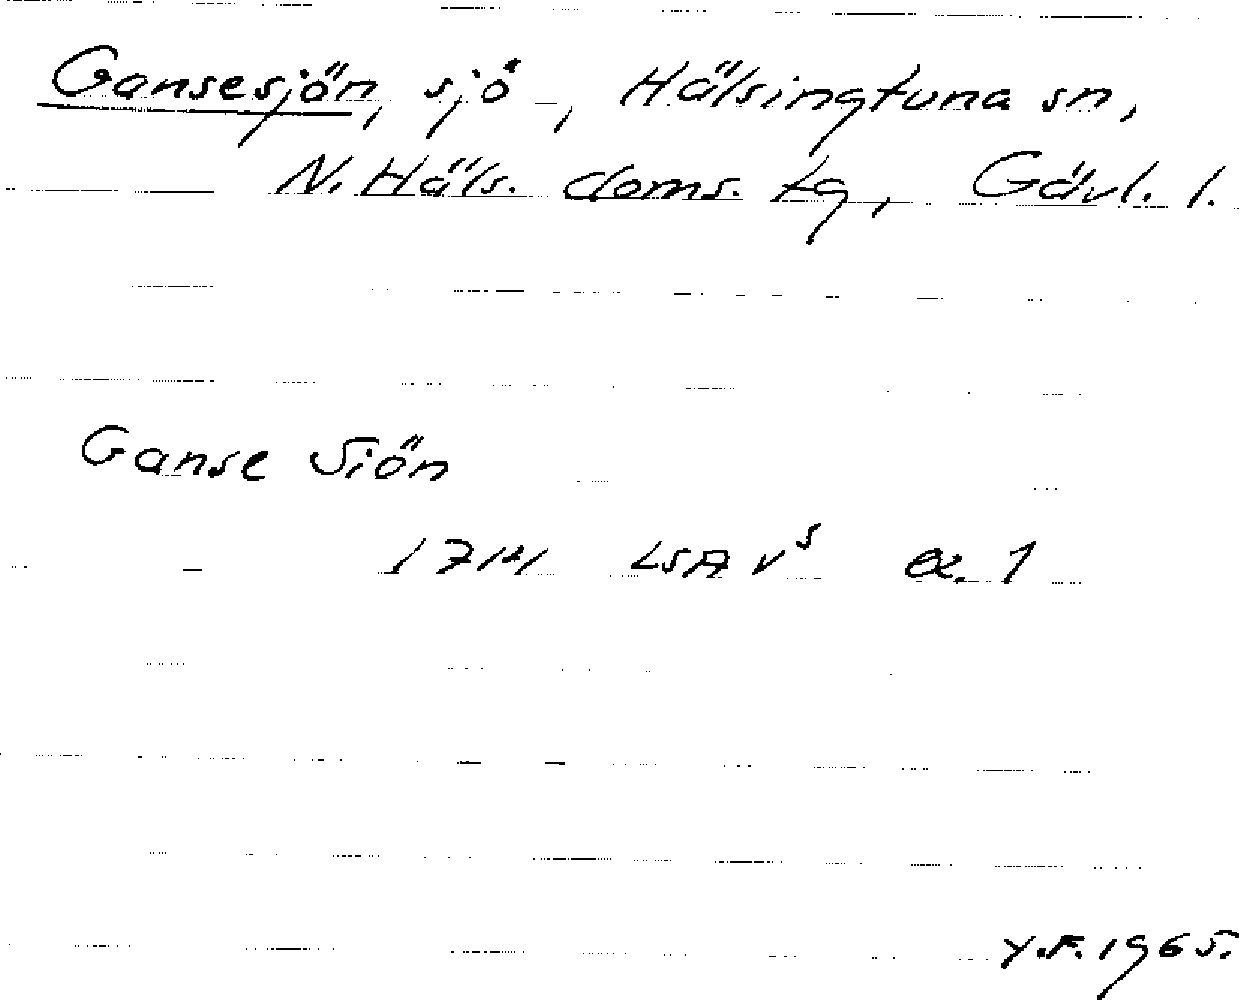 Gansesjön, sjö -, Hälsingtuna sn,
N. Häls. doms. tg, Gävl. l.
Ganse Siön
1714 LSA v⁵ α. 1
Y.F. 1965.